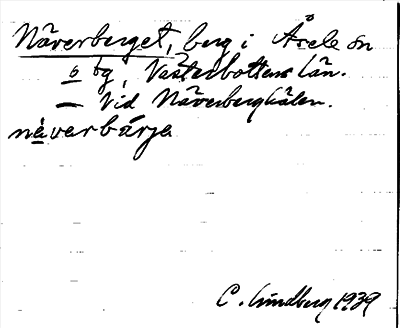 Näverberget, berg i Åsele sn
o bg, Västerbottens län.
— Vid Näverbergkälen.
näverbärje
C. Lundberg 1939